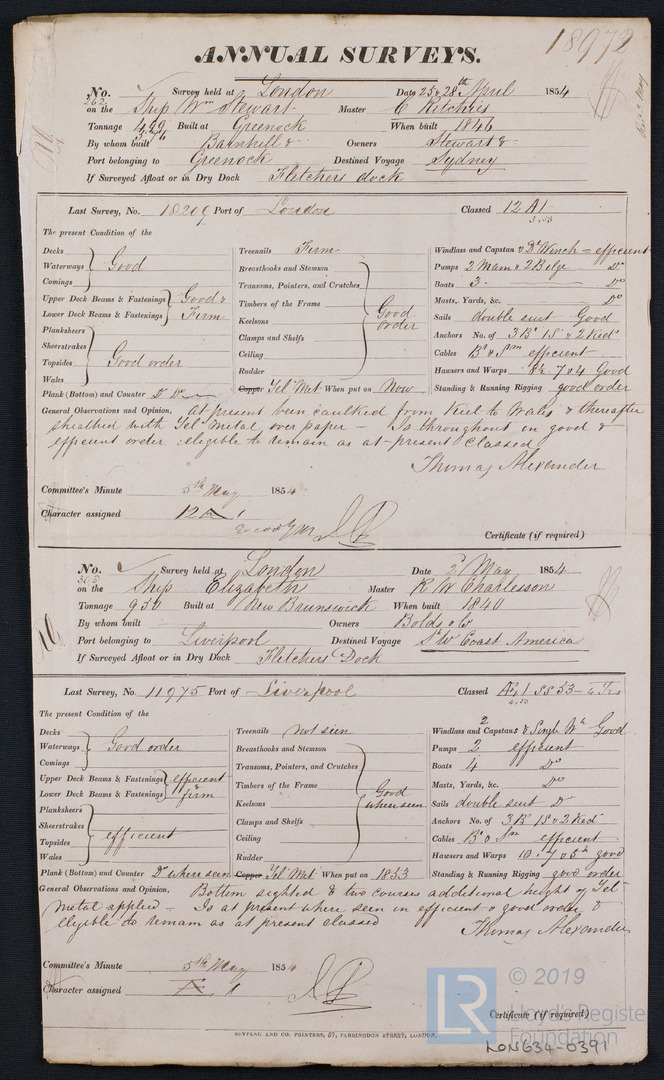 18972
ANNUAL SURVEYS.
No. 262 Survey held at London Date 25 & 28th April 1854
on the Ship Wm Stewart Master C Ritchies
Tonnage 499 576 Built at Greenock When built 1846
By whom built Barnhill & Owners Stewart &
Port belonging to Greenock Destined Voyage Sydney
If Surveyed Afloat or in Dry Dock Fletchers dock
Last Survey, No. 18209 Port of London Classed 12 A1
3.53
The present Condition of the
Decks Treenails Firm Windlass and Capstan & Dk Winch = efficient
Waterways Good Breasthooks and Stemson Pumps 2 Main & 2 Bilge Do
Comings Transoms, Pointers, and Crutches Boats 3. Do
Upper Deck Beams & Fastenings Good & Timbers of the Frame Good Masts, Yards, &c. Do
Lower Deck Beams & Fastenings Firm Keelsons order Sails double suit Good
Planksheers Clamps and Shelfs Anchors No. of 3 Br 1 S & 2 Ked
Sheerstrakes Ceiling Cables Br & Sm efficient
Topsides Good order Rudder Hawsers and Warps 8½. 7 & 4 Good
Wales
Plank (Bottom) and Counter Do Do Copper Yel Met When put on Now Standing & Running Rigging good order
General Observations and Opinion, At present been caulked from Keel to Wales & thereafter
sheathed with Yel Metal over paper - Is throughout in good &
efficient order eligible to remain as at present classed
Thomas Alexander
Committee's Minute 5th May 1854
Character assigned 12 A 1
Certificate (if required)
No. 305 Survey held at London Date 2 May 1854
on the Ship Elizabeth Master R W Charlesson
Tonnage 950 Built at New Brunswick When built 1840
By whom built Owners Bolds & Co
Port belonging to Liverpool Destined Voyage S W Coast America
If Surveyed Afloat or in Dry Dock Fletchers Dock
Last Survey, No. 11975 Port of Liverpool Classed Æ 1 SS 53 - 4 Yrs
4.50
The present Condition of the
Decks Treenails not seen Windlass and Capstans 2 & Single Wh Good
Waterways Good order Breasthooks and Stemson Pumps 2 efficient
Comings Transoms, Pointers, and Crutches Boats 4 Do
Upper Deck Beams & Fastenings efficient Timbers of the Frame Good Masts, Yards, &c. Do
Lower Deck Beams & Fastenings & firm Keelsons when seen Sails double suit Do
Planksheers Clamps and Shelfs Anchors No. of 3 Br 1 S & 2 Ked
Sheerstrakes Ceiling Cables Br & Sm efficient
Topsides efficient Rudder Hawsers and Warps 10. 7 & 5 in good
Wales
Plank (Bottom) and Counter Do where seen Copper Yel Met When put on 1853 Standing & Running Rigging good order
General Observations and Opinion, Bottom sighted & two courses additional height of Yel
metal applied - Is at present where seen in efficient & good order &
eligible to remain as at present classed Thomas Alexander
Committee's Minute 5th May 1854
Character assigned Æ 1
Certificate (if required)
SEYFANG AND CO. PRINTERS, 57, FARRINGDON STREET, LONDON.
LR © 2019
Lloyd's Register
Foundation
LON634-0391